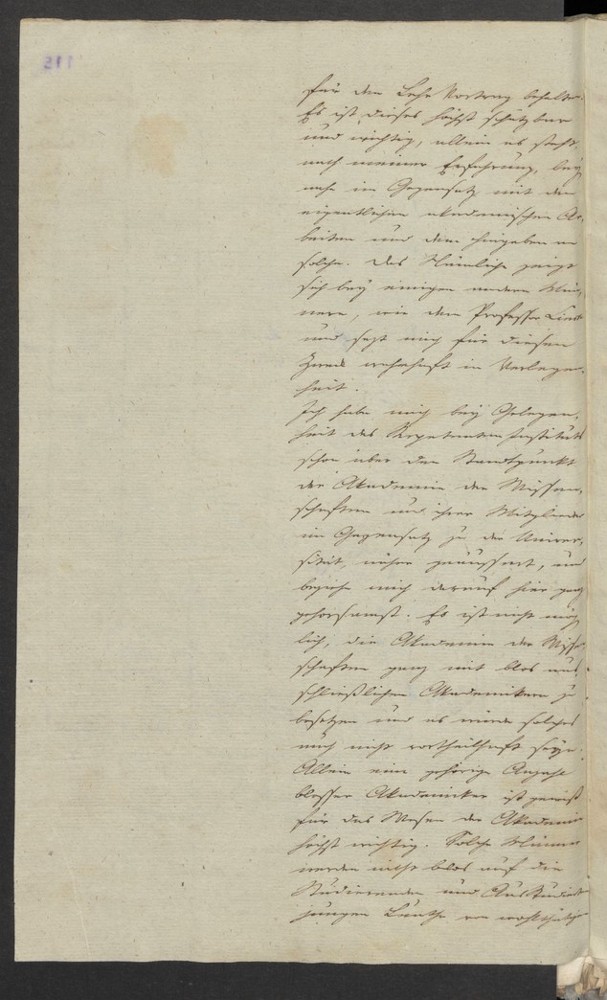 für den Lehr Vortrag behalten.
Es ist dieses höchst schätzbar
und wichtig, allein es steht,
nach meiner Erfahrung, bey¬
nahe im Gegensatz mit den
eigentlichen akademischen Ar¬
beiten und dem hingeben an
solche. Das Nämliche zeigt
sich bey einigen andern Män¬
nern, wie dem Professor Link
und sezt mich für diesen
Zweck wahrhaft in Verlegen¬
heit.
Ich habe mich bey Gelegen¬
heit des Repetenten Instituts
schon über den Standpunkt
der Akademie der Wissen¬
schaften und ihrer Mitglieder
im Gegensatz zu der Univer¬
sität, näher geäussert, und
beziehe mich darauf hier ganz
gehorsamst. Es ist nicht mög¬
lich, die Akademie der Wissen
schaften ganz mit blos aus¬
schließlichen Akademikern zu
besetzen und es würde solches
auch nicht vortheilhaft seyn.
Allein eine gehörige Anzahl
blosser Akademiker ist gewiß
für das Wesen der Akademie
höchst wichtig. Solche Männer
werden nicht blos auf die
Studierenden und
jungen Leuthe von wohlthätigem